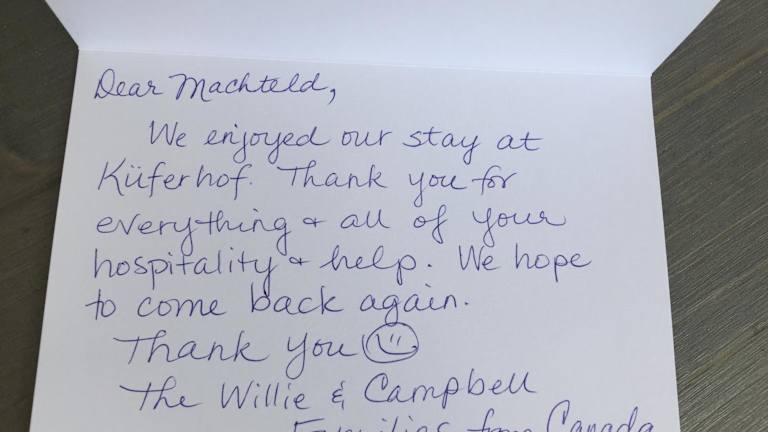 Dear Machteld,
We enjoyed our stay at
Küferhof. Thank you for
everything & all of your
hospitality & help. We hope
to come back again.
Thank you
The Willie & Campbell
Families from Canada